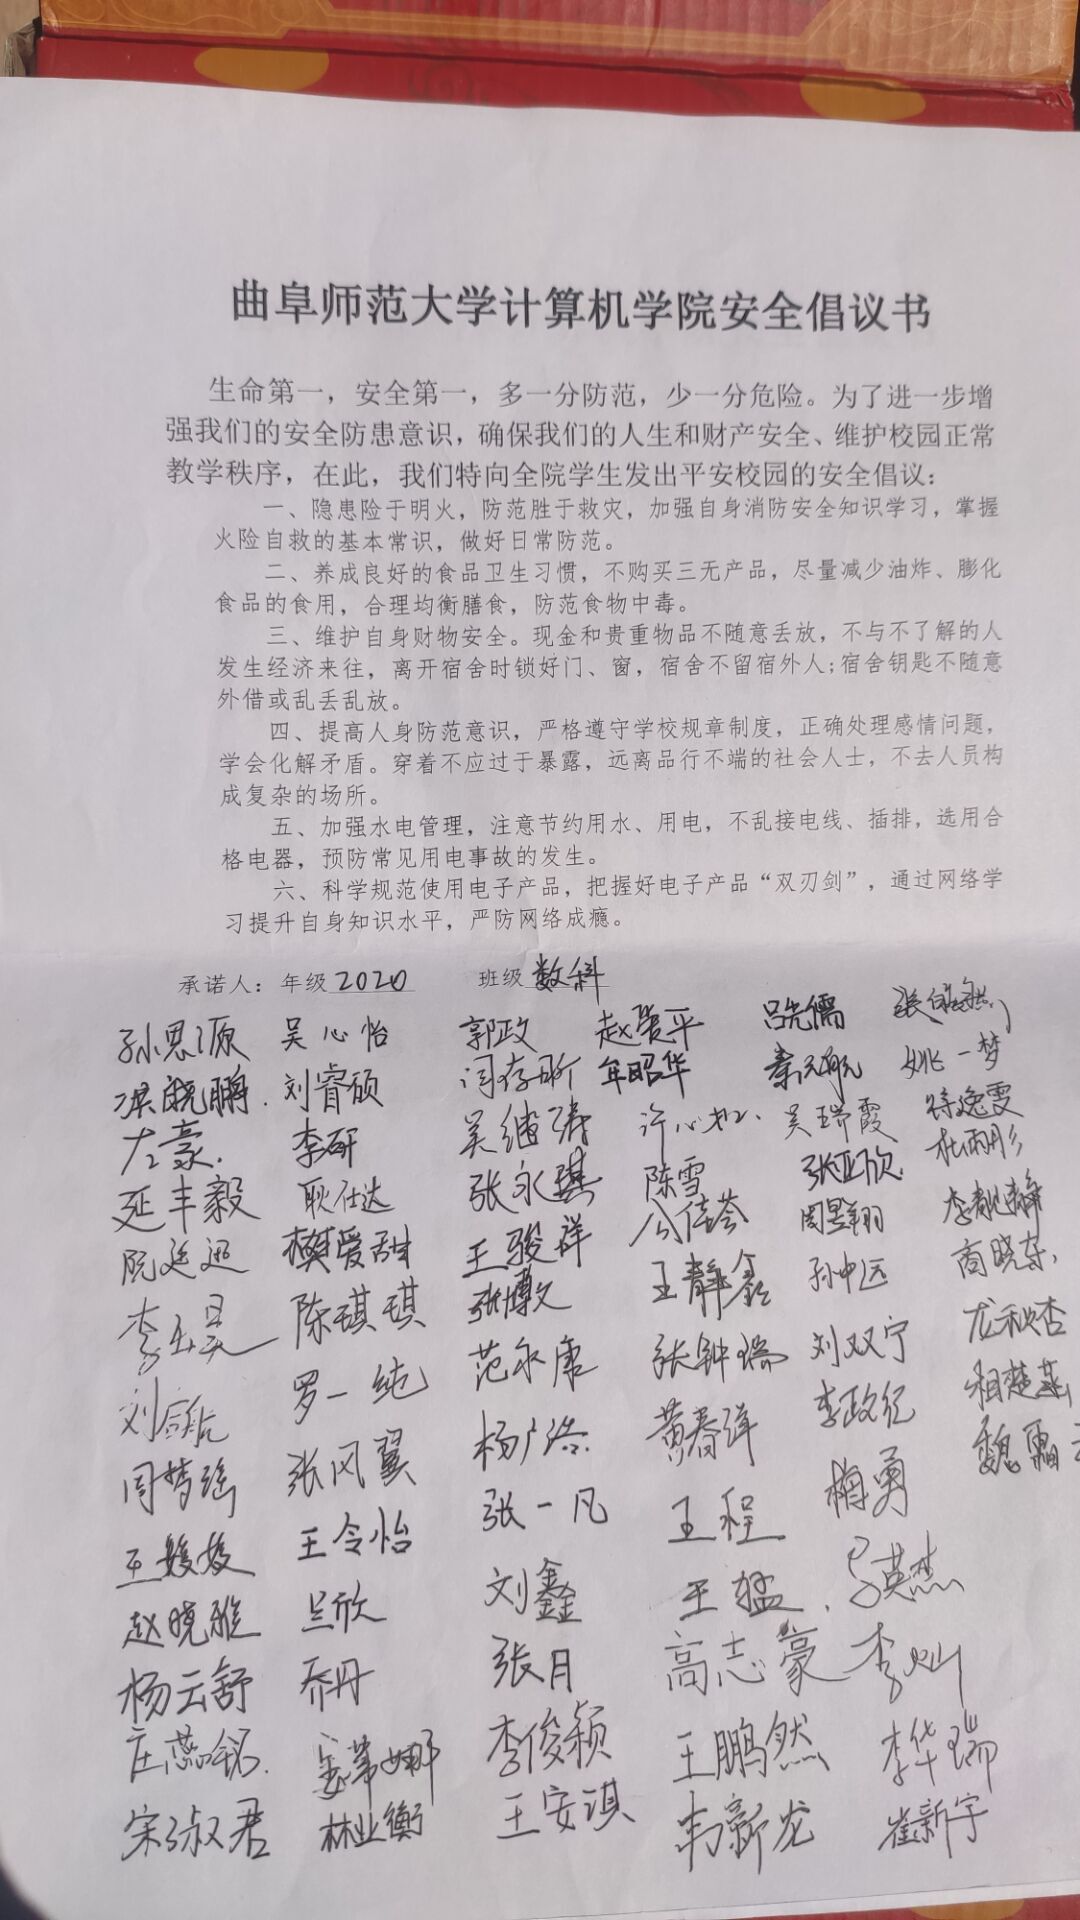 曲阜师范大学计算机学院安全倡议书
生命第一，安全第一，多一分防范，少一分危险。为了进一步增
强我们的安全防患意识，确保我们的人生和财产安全、维护校园正常
教学秩序，在此，我们特向全院学生发出平安校园的安全倡议：
一、隐患险于明火，防范胜于救灾，加强自身消防安全知识学习，掌握
火险自救的基本常识，做好日常防范。
二、养成良好的食品卫生习惯，不购买三无产品，尽量减少油炸、膨化
食品的食用，合理均衡膳食，防范食物中毒。
三、维护自身财物安全。现金和贵重物品不随意丢放，不与不了解的人
发生经济来往，离开宿舍时锁好门、窗，宿舍不留宿外人;宿舍钥匙不随意
外借或乱丢乱放。
四、提高人身防范意识，严格遵守学校规章制度，正确处理感情问题，
学会化解矛盾。穿着不应过于暴露，远离品行不端的社会人士，不去人员构
成复杂的场所。
五、加强水电管理，注意节约用水、用电，不乱接电线、插排，选用合
格电器，预防常见用电事故的发生。
六、科学规范使用电子产品，把握好电子产品“双刃剑”，通过网络学
习提升自身知识水平，严防网络成瘾。
承诺人：年级2020 班级 数科
孙思源 吴心怡 郭政 吕先儒
刘睿颀 闫存昕 年昭华 秦沅航 姚一梦
左豪. 李研 吴继涛 吴瑞霞 徐逸雯
延丰毅 耿仕达 张永琪 陈雪 张亚欣 杜雨彤
阮廷迅 樊爱甜 王骏祥 公倩荟 周昱翔 李靓静
陈琪琪 张博文 王静鑫 孙中远 商晓东
罗一纯 范永康 张钟瑞 刘双宁 龙秋杏
周梦瑶 张风翼 黄春洋 李政纪 相楚燕
王媛媛 王令怡 张一凡 王程 梅勇
赵晓雅 兰欣 刘鑫 王猛. 马英杰
杨云舒 乔丹 张月 高志豪 李灿
庄燕铭. 李俊颖 王鹏然 李华瑞
宋淑君 林业衡 王安琪 韦新龙 崔新宇